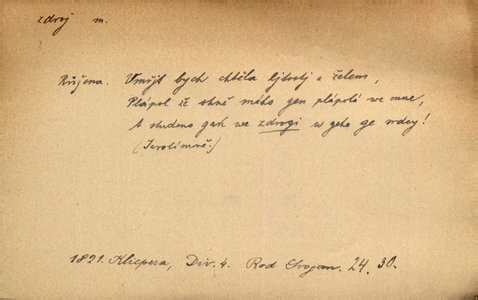 zdroj m.
Růžena. Umřjt bych chtěla ljtostj a želem,
Plápol že ohně mého gen plápolá we mne,
A studeno gak we zdrogi w geho ge srdcy!
(Jarolímově.)
1821. Klicpera, Div. 4. Rod Svojan. 24. 30.